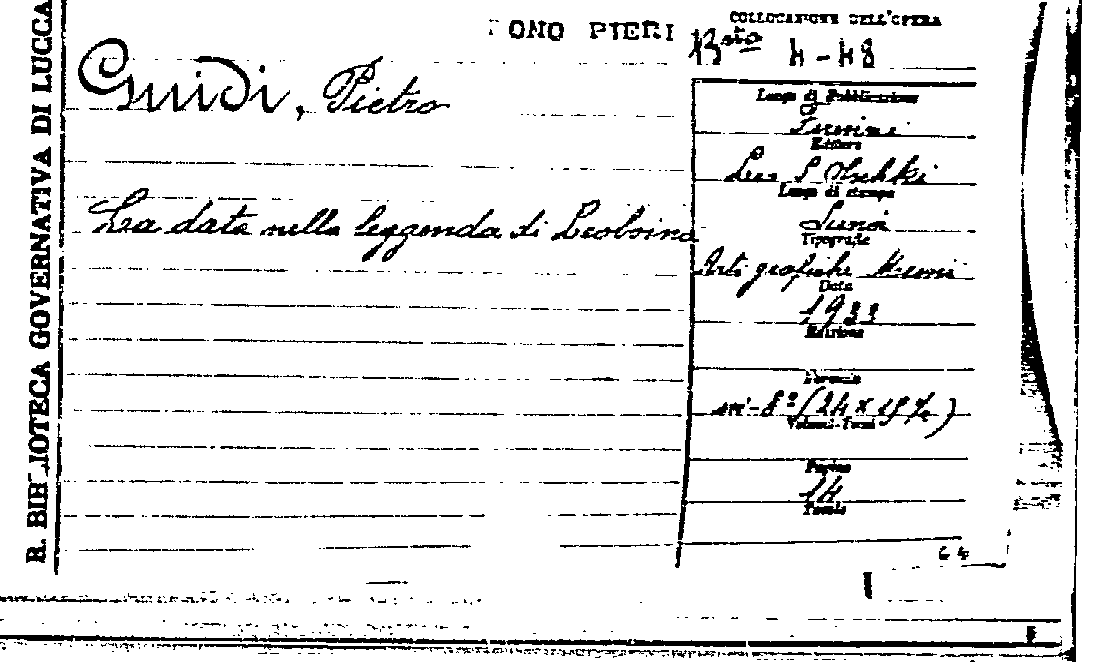 R. BIBLIOTECA GOVERNATIVA DI LUCCA
FONO PIERI
COLLOCAZIONE DELL'OPERA
Bsta 4-48
Guidi, Pietro
La data nella leggenda di Leobino
Luogo di Pubblicazione
Editore
Leo S Olschki
Luogo di stampa
Tipografia
Arti grafiche
Data
1933
Edizione
Formato
in-8º (24 x 17 %)
Volumi-Tomi
Pagine
14
Tavole
64